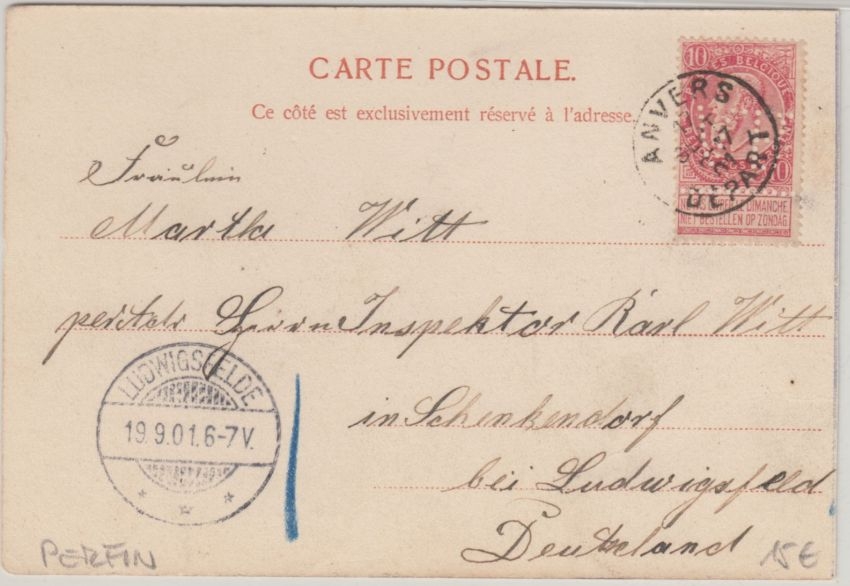 CARTE POSTALE.
Ce côté est exclusivement réservé à l'adresse.
10 10
ANVERS
DÉPART
NE PAS LIVRER LE DIMANCHE
NIET BESTELLEN OP ZONDAG
Fräulein
Martha Witt
Herrn Inspektor Karl Witt
in Schenkendorf
bei Ludwigsfeld
Deutschland
LUDWIGSFELDE
19.9.01.6-7V.
PERFIN
15€